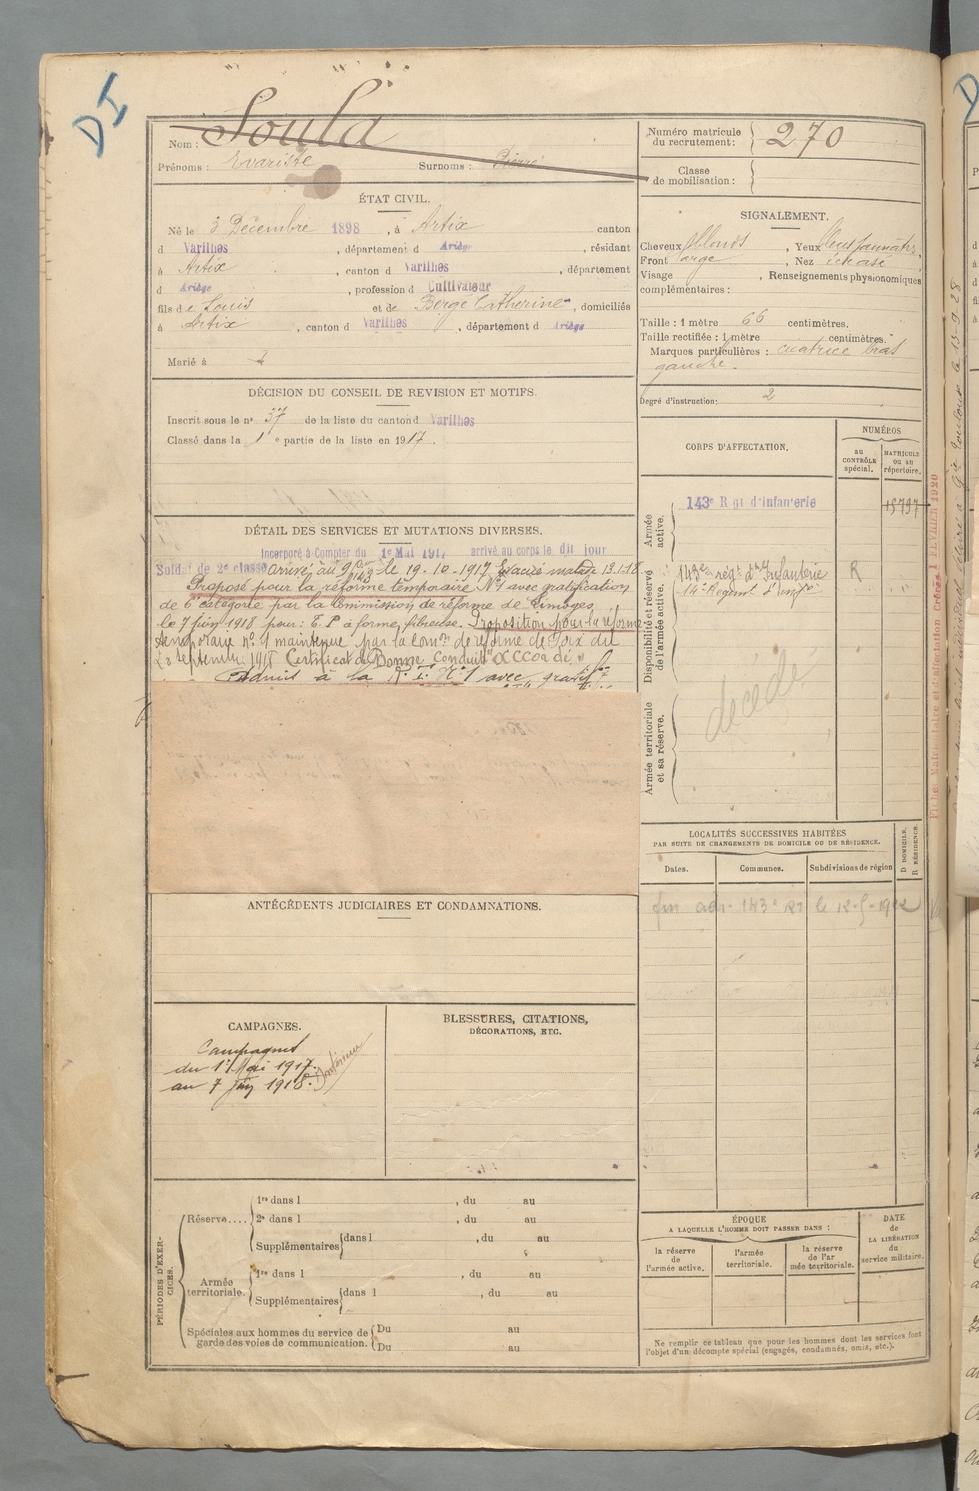 DI
Nom : Soula
Prénoms : Evariste Surnoms : Pierre
Numéro matricule du recrutement : 270
Classe de mobilisation :
ÉTAT CIVIL.
Né le 3 Décembre 1898, à Artix canton
d Varilhes, département d Ariège, résidant
à Artix, canton d Varilhes, département
d Ariège, profession d Cultivateur
fils de Louis et de Berge Catherine, domiciliés
à Artix, canton d Varilhes, département d Ariège
Marié à
SIGNALEMENT.
Cheveux blonds, Yeux
Front large, Nez écrasé
Visage , Renseignements physionomiques
complémentaires :
Taille : 1 mètre 66 centimètres.
Taille rectifiée : 1 mètre centimètres.
Marques particulières : cicatrice bras
gauche.
Degré d'instruction : 2
DÉCISION DU CONSEIL DE REVISION ET MOTIFS.
Inscrit sous le n° 37 de la liste du canton d Varilhes
Classé dans la 1e partie de la liste en 1917.
CORPS D'AFFECTATION.
NUMÉROS
au CONTRÔLE spécial.
MATRICULE ou au répertoire.
Armée active.
143e Rgt d'infanterie 15797
Disponibilité et réserve de l'armée active.
143e régt d'Infanterie R
Armée territoriale et sa réserve.
décédé
DÉTAIL DES SERVICES ET MUTATIONS DIVERSES.
Incorporé à Compter du 1e Mai 1917 arrivé au corps le dit jour
Soldat de 2e classe arrivé au le 19-10-1917 Evacué malade 13.1.18.
Proposé pour la réforme temporaire N°1 avec gratification
de 6 catégorie par la Commission de réforme de Limoges
le 7 juin 1918 pour : T. P à forme fibreuse. Proposition pour la réforme
temporaire N° 1 maintenue par la Comon de réforme de Foix du
23 Septembre 1918 Certificat de Bonne Conduite "Accordé"
Admis à la R. T. N° 1 avec gratifon
Fiche Matriculaire et d'affectation Créées FÉVRIER 1920
LOCALITÉS SUCCESSIVES HABITÉES
PAR SUITE DE CHANGEMENTS DE DOMICILE OU DE RÉSIDENCE.
Dates. Communes. Subdivisions de région
D DOMICILE.
R RÉSIDENCE.
143e RI le 12-5-1922
ANTÉCÉDENTS JUDICIAIRES ET CONDAMNATIONS.
CAMPAGNES.
Campagnes
du 1er Mai 1917
au 7 Juin 1918.
Intérieur
BLESSURES, CITATIONS,
DÉCORATIONS, ETC.
PÉRIODES D'EXERCICES.
Réserve....
1re dans l , du au
2e dans l , du au
Supplémentaires dans l , du au
Armée territoriale.
1re dans l , du au
Supplémentaires dans l , du au
Spéciales aux hommes du service de garde des voies de communication.
Du au
Du au
ÉPOQUE
A LAQUELLE L'HOMME DOIT PASSER DANS :
la réserve de l'armée active.
l'armée territoriale.
la réserve de l'armée territoriale.
DATE de LA LIBÉRATION du service militaire.
Ne remplir ce tableau que pour les hommes dont les services font
l'objet d'un décompte spécial (engagés, condamnés, omis, etc.).